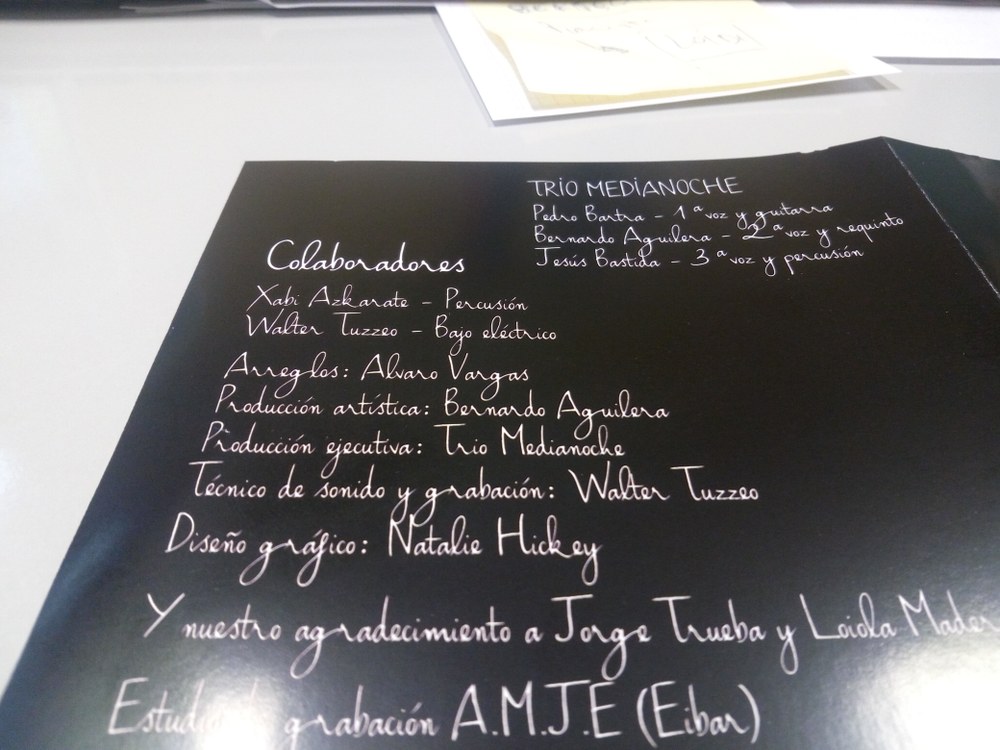 TRIO MEDIANOCHE
Pedro Bartra - 1ª voz y guitarra
Bernardo Aguilera - 2ª voz y requinto
Jesús Bastida - 3ª voz y percusión
Colaboradores
Xabi Azkarate - Percusión
Walter Tuzzeo - Bajo eléctrico
Arreglos: Alvaro Vargas
Producción artística: Bernardo Aguilera
Producción ejecutiva: Trio Medianoche
Técnico de sonido y grabación: Walter Tuzzeo
Diseño gráfico: Natalie Hickey
Y nuestro agradecimiento a Jorge Trueba y Loiola
grabación A.M.J.E (Eibar)